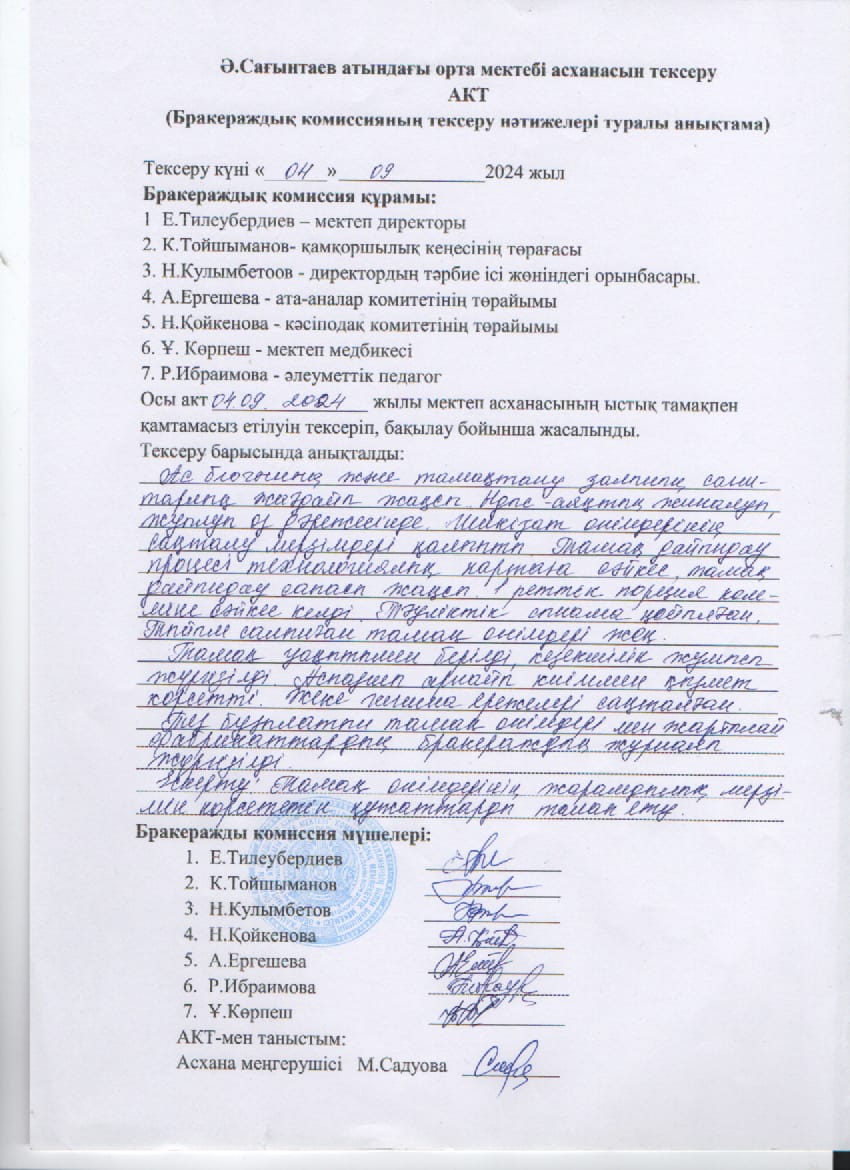 Ә.Сағынтаев атындағы орта мектебі асханасын тексеру
АКТ
(Бракераждық комиссияның тексеру нәтижелері туралы анықтама)
Тексеру күні « 04 » 09 2024 жыл
Бракераждық комиссия құрамы:
1 Е.Тилеубердиев – мектеп директоры
2. К.Тойшыманов- қамқоршылық кеңесінің төрағасы
3. Н.Кулымбетоов - директордың тәрбие ісі жөніндегі орынбасары.
4. А.Ергешева - ата-аналар комитетінің төрайымы
5. Н.Қойкенова - кәсіподақ комитетінің төрайымы
6. Ұ. Көрпеш - мектеп медбикесі
7. Р.Ибраимова - әлеуметтік педагог
Осы акт 04.09. 2024 жылы мектеп асханасының ыстық тамақпен
қамтамасыз етілуін тексеріп, бақылау бойынша жасалынды.
Тексеру барысында анықталды:
Ас блогының және тамақтану залының сани-
тарлық жағдайы жақсы. Ыдыс-аяқтың жиналуы,
жуылуы өз дәрежесінде. Шикізат өнімдерінің
сақталу мерзімдері қалыпты. Тамақ дайындау
процесі технологиялық картаға сәйкес, тамақ
дайындау сапасы жақсы. 1 реттік порция көле-
міне сәйкес келді. Тәуліктік сынама қойылған.
Тыйым салынған тамақ өнімдері жоқ.
Тамақ уақытымен берілді, кезекшілік жұмысы
жүргізілді. Аспазшы арнайы киіммен қызмет
көрсетті. Жеке гигиена ережелері сақталған.
Тез бұзылатын тамақ өнімдері мен жартылай
фабрикаттардың бракераждық журналы
жүргізілді.
Ескерту тамақ өнімдерінің жарамдылық мерзі-
мін көрсететін құжаттарды талап ету.
Бракеражды комиссия мүшелері:
1. Е.Тилеубердиев
2. К.Тойшыманов
3. Н.Кулымбетов
4. Н.Қойкенова
5. А.Ергешева
6. Р.Ибраимова
7. Ұ.Көрпеш
АКТ-мен таныстым:
Асхана меңгерушісі М.Садуова